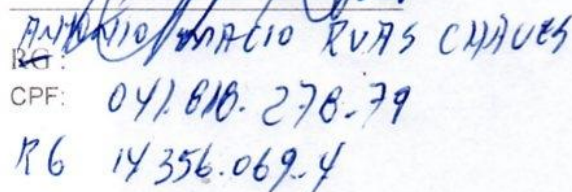 ANTONIO INACIO RUAS CHAVES
RG:
CPF: 041.818.278-79
RG 14356.069-4